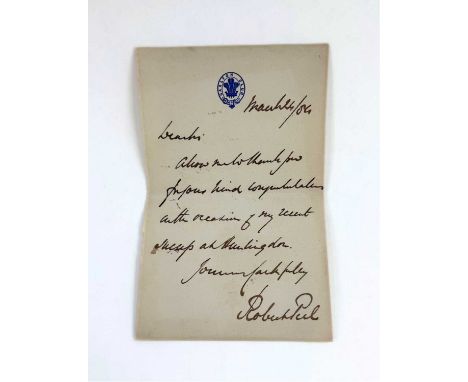 CARLTON CLUB
March 26/84
Dear Sir
Allow me to thank you
for your kind congratulations
on the occasion of my recent
success at Huntingdon.
Yours faithfully
Robert Peel